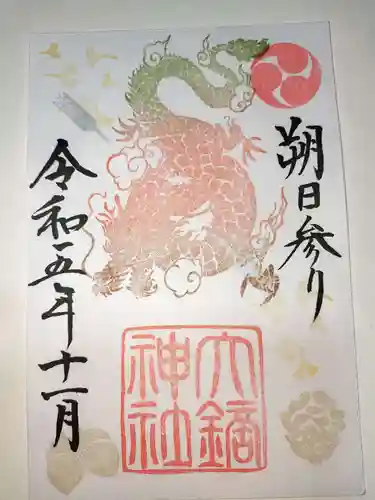 朔日参り
六鏑
神社
令和五年十一月